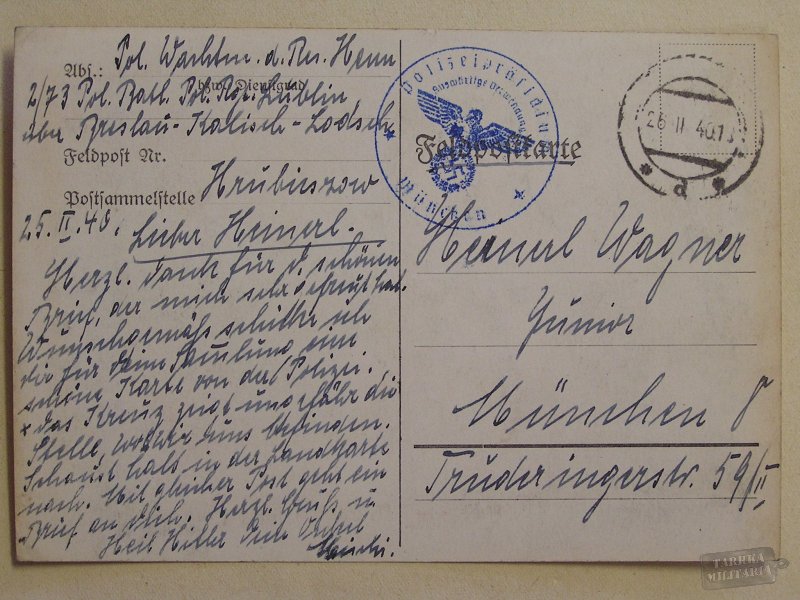 Abs.: Pol. Wachtm. d. Res. Henn
bzw. Dienstgrad
2/73 Pol. Batl. Pol. Rgt. Lublin
über Breslau-Kalisch-Lodsch
Feldpost Nr.
Postsammelstelle Hrubieszow
25. II. 40. Lieber Heinerl.
Herzl. Dank für d. schönen
Brief, der mich sehr gefreut hat.
Wunschgemäß schicke ich
dir für deine Samlung eine
meine Karte von der Polizei.
x das Kreuz zeigt ungefähr die
Stelle, wo wir uns befinden.
Schaust halt in der Landkarte
nach. Mit gleicher Post geht ein
Brief an dich. Herzl. Gruß u.
Heil Hitler Dein Onkel
Polizeipräsidium
Auswärtige Verwendung
München
Feldpostkarte
26 II 40
d
Heinerl Wagner
Junior
München 8
Truderingerstr. 59/II
TARHKA
MILITARIA